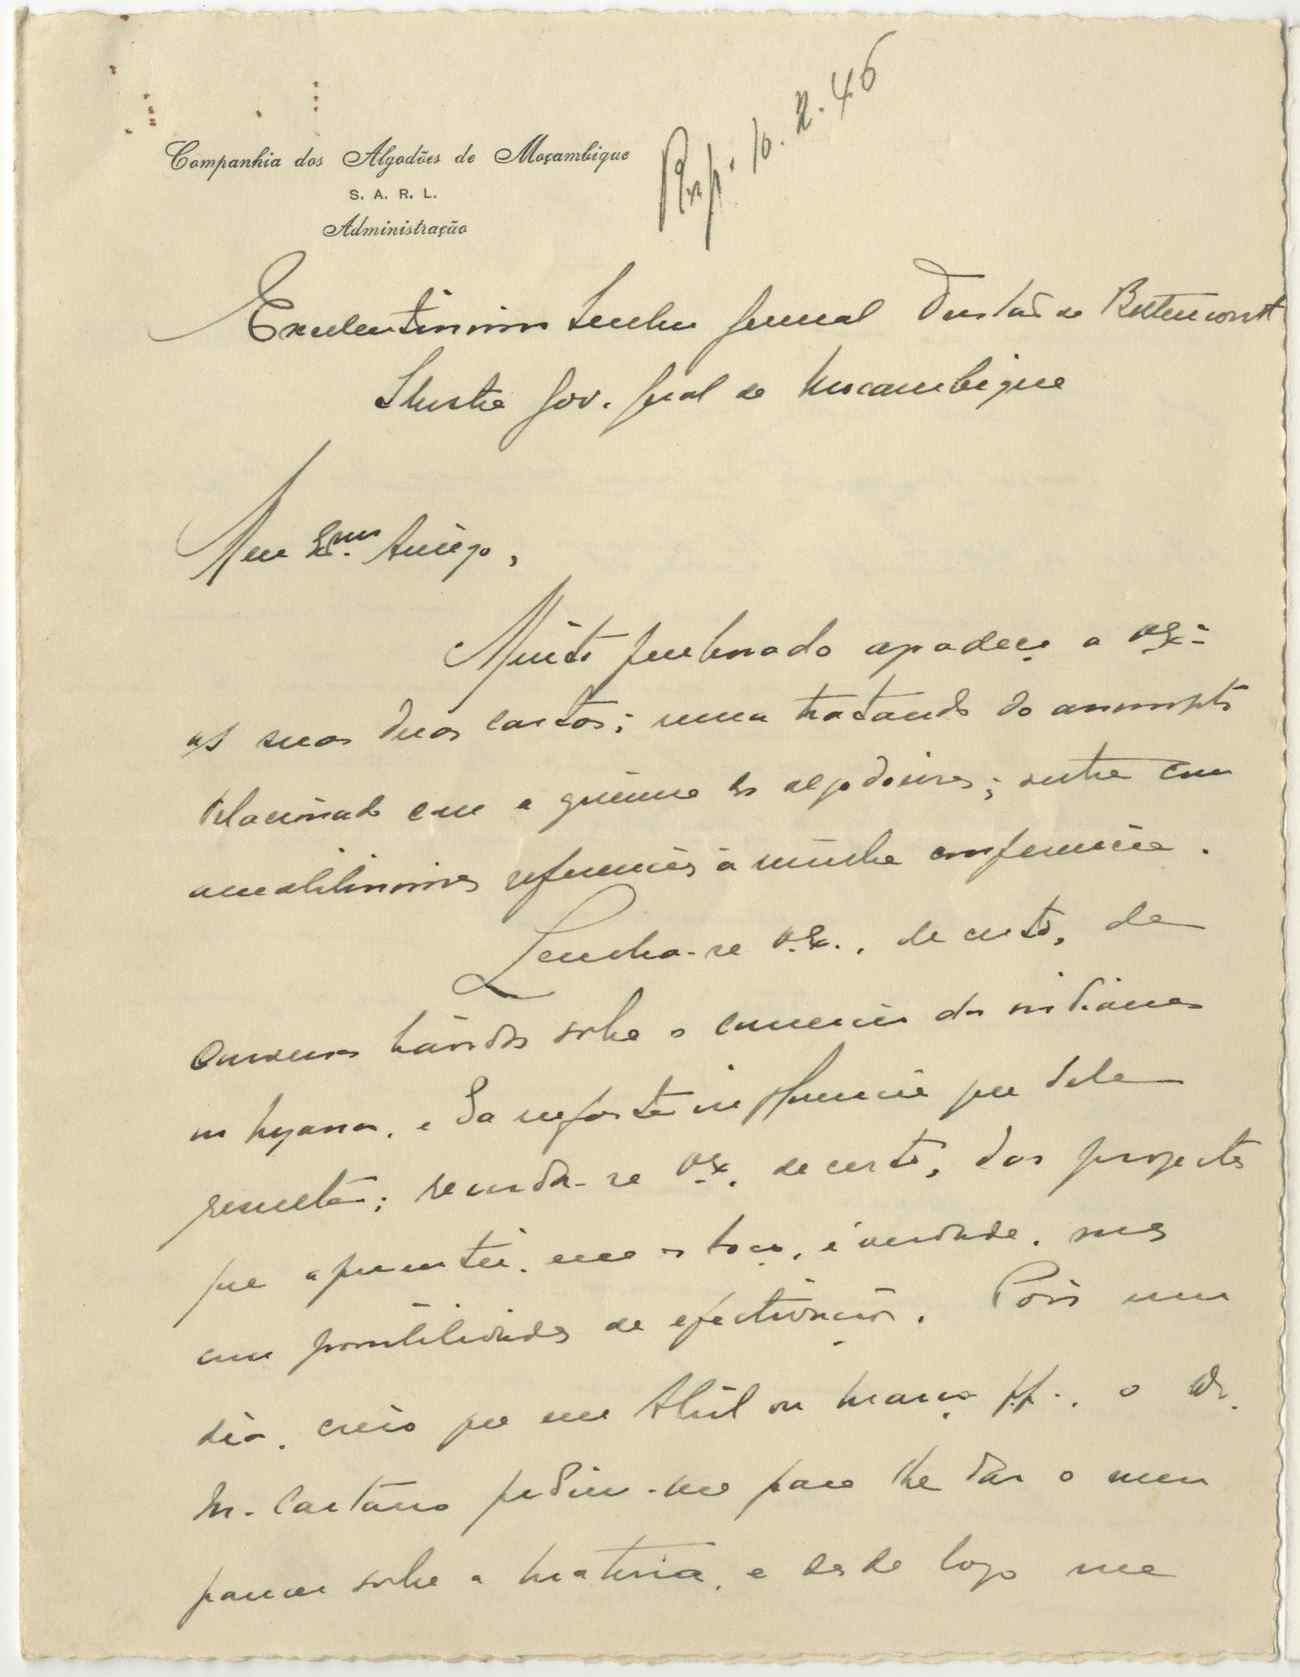 Companhia dos Algodões de Moçambique
S. A. R. L.
Administração
Resp. 10.2.46
Excelentissimo Senhor General Tristão de Bettencourt
Ilustre Gov. Geral de Moçambique
Meu Exmo. Amigo,
Muito penhorado agradeço a V. Ex.ª
as suas duas cartas; uma tratando do assumpto
relacionado com o gremio dos algodoeiros; outra com
amabilissimas referencias á minha conferencia.
Lembra-se V. Ex., de certo, de
conversas havidas sobre o comercio dos indianos
no Nyassa, e da nefasta influencia que dele
resulta; recorda-se V. Ex., de certo, dos projectos
que apresentei, em esboço, é verdade, mas
com possibilidades de efectivação. Pois um
dia, creio que em Abril ou Março pp., o Dr.
M. Caetano pediu-me para lhe dar o meu
parecer sobre a materia, e desde logo me